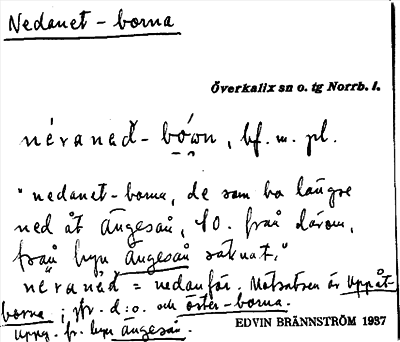 Nedanet-borna
Överkalix sn o. tg Norrb. l.
néranéd-bówn, bf. m. pl.
"nedanet-borna, de som bo längre
ned åt Ängesån, SO. från därom,
från byn Ängesån räknat."
néranéd = nedanför. Motsatsen är Uppåt-
borna; jfr. d:o. och öster-borna.
Uppg. fr. byn Ängesån.
EDVIN BRÄNNSTRÖM 1937